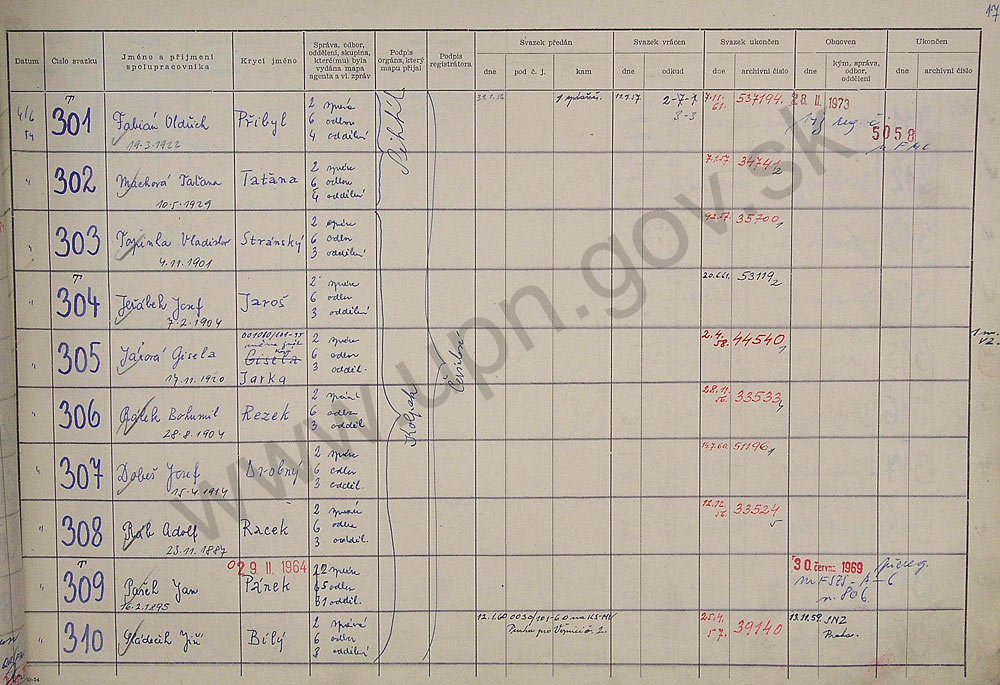 17
Datum
Číslo svazku
Jméno a příjmení
spolupracovníka
Krycí jméno
Správa, odbor,
oddělení, skupina,
které(mu) byla
vydána mapa
agenta a vl. zpráv
Podpis
orgána, který
mapu přijal
Podpis
registrátora
Svazek předán
dne
pod č. j.
kam
Svazek vrácen
dne
odkud
Svazek ukončen
dne
archivní číslo
Obnoven
dne
kým, správa,
odbor,
oddělení
Ukončen
dne
archivní číslo
301
Fabián Oldřich
19.3.1922
Přibyl
2 správa
6 odbor
4 oddělení
2-7-1
3-3
537194.
28. II. 1973
5058
302
Machová Taťana
10.5.1929
Taťana
2 správa
6 odbor
4 oddělení
7.1.57.
34741
2
303
Vladislav
4.11.1901
Stránský
2 správa
6 odbor
3 oddělení
35700
1
304
Jeřábek Josef
7.2.1904
Jaroš
2 správa
6 odbor
3 oddělení
53119
2
305
Járová Gisela
17.11.1920
Gisela
Jarka
2 správa
6 odbor
3 odděl.
2.4.
58.
44540
1
306
Bohumil
28.8.1904
Rezek
2 správa
6 odbor
3 odděl.
28.11.
56.
33533
307
Dobeš Josef
15.4.1914
Drobný
2 správa
6 odbor
3 odděl.
51196
1
308
Adolf
23.11.1887
Racek
2 správa
6 odbor
3 odděl.
12.12.
56.
33524
5
309
Pašek Jan
16.2.1895
29. II. 1964
Pánek
správa
odbor
odděl.
30. červ. 1969
310
Jiří
Bílý
2 správa
6 odbor
3 oddělení
12.1.60
25.4.
57.
39140
13.11.59
Praha.
www.upn.gov.sk